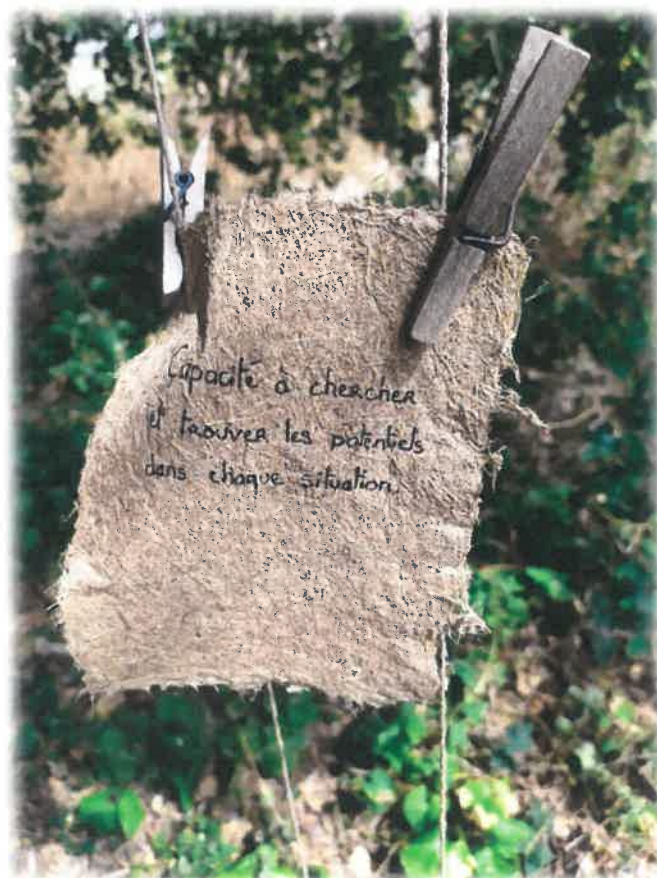 Capacité à chercher
et trouver les potentiels
dans chaque situation